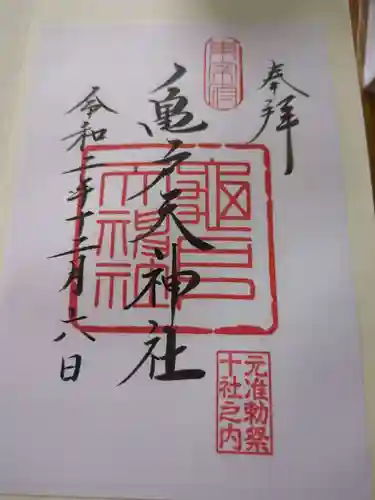 奉拝
亀戸天神社
令和二年十二月六日
元准勅祭
十社之内